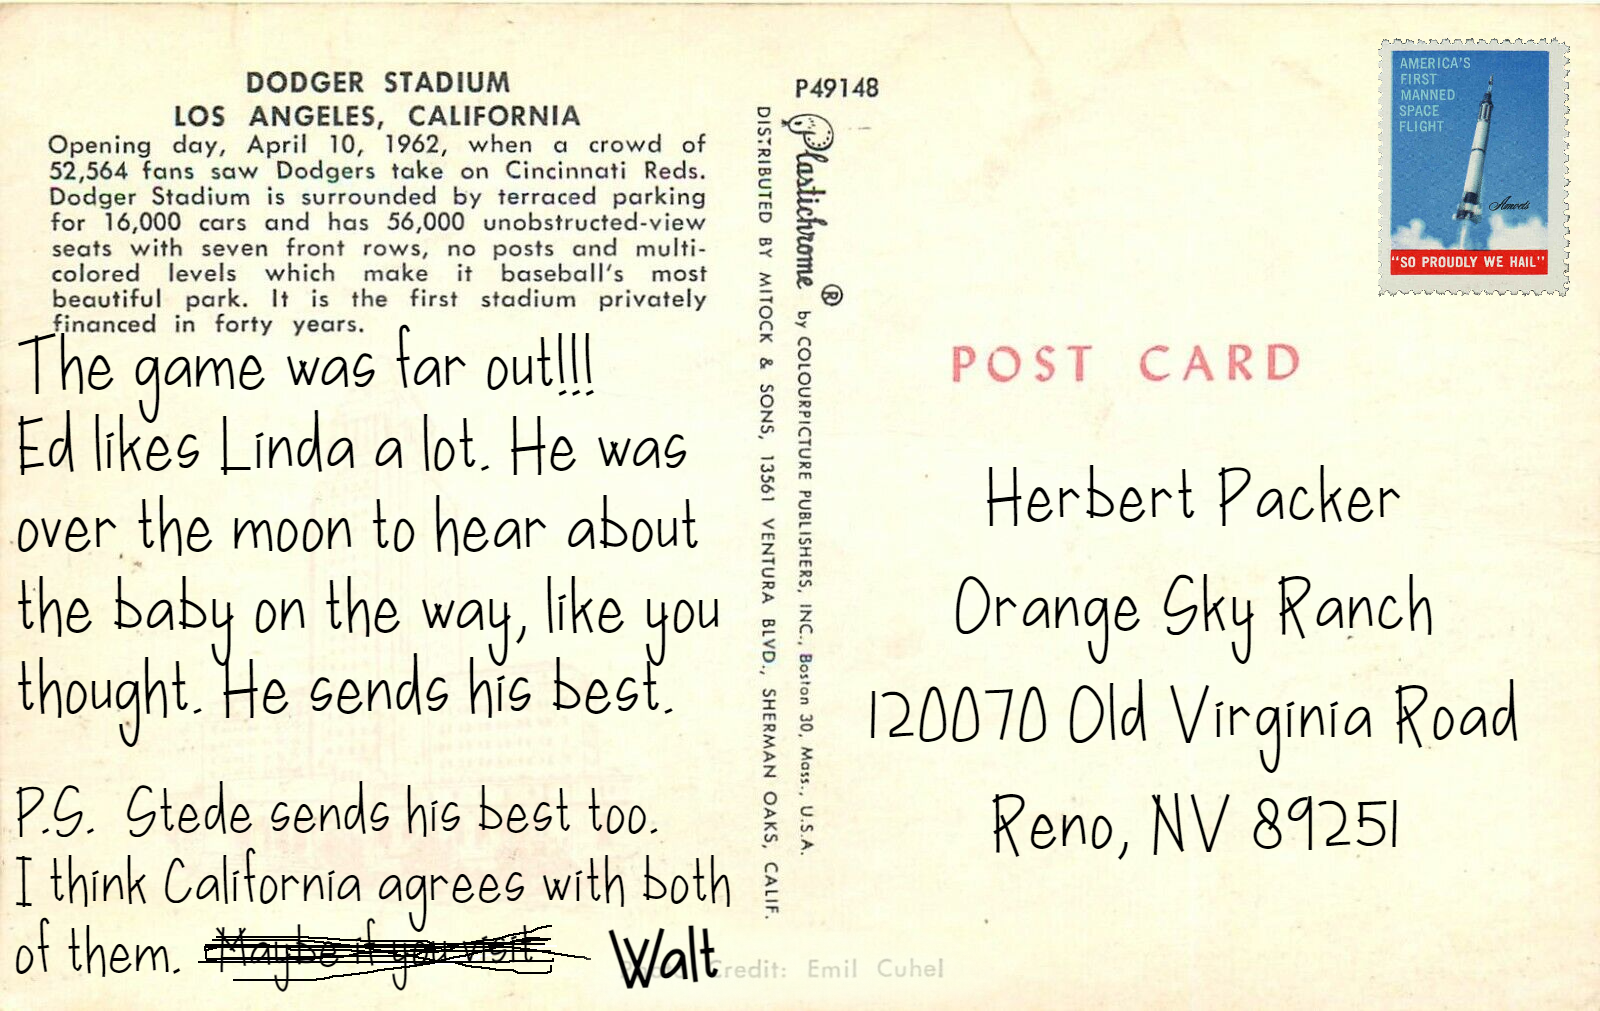 DODGER STADIUM
LOS ANGELES, CALIFORNIA
Opening day, April 10, 1962, when a crowd of
52,564 fans saw Dodgers take on Cincinnati Reds.
Dodger Stadium is surrounded by terraced parking
for 16,000 cars and has 56,000 unobstructed-view
seats with seven front rows, no posts and multi-
colored levels which make it baseball's most
beautiful park. It is the first stadium privately
financed in forty years.
The game was far out!!!
Ed likes Linda a lot. He was
over the moon to hear about
the baby on the way, like you
thought. He sends his best.
P.S. Stede sends his best too.
I think California agrees with both
of them. Maybe if you visit
Walt
Credit: Emil Cuhel
P49148
DISTRIBUTED BY MITOCK & SONS, 13561 VENTURA BLVD., SHERMAN OAKS, CALIF.
Plastichrome ® by COLOURPICTURE PUBLISHERS, INC., Boston 30, Mass., U.S.A.
AMERICA'S
FIRST
MANNED
SPACE
FLIGHT
"SO PROUDLY WE HAIL"
POST CARD
Herbert Packer
Orange Sky Ranch
120070 Old Virginia Road
Reno, NV 89251